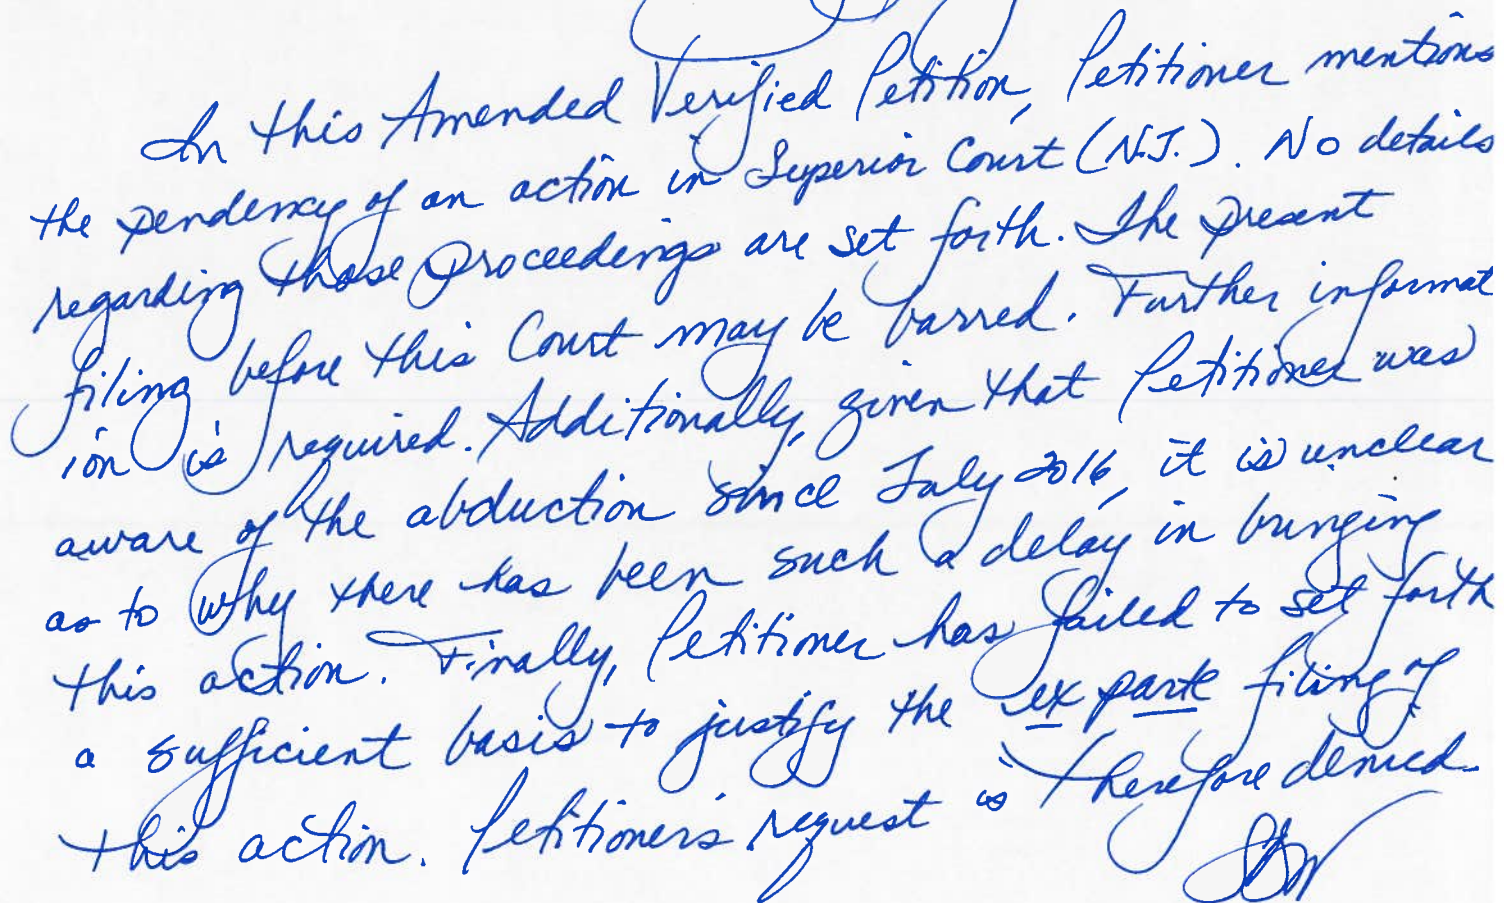 In this Amended Verified Petition, Petitioner mentions
the pendency of an action in Superior Court (N.J.). No details
regarding those proceedings are set forth. The present
filing before this Court may be barred. Further informat
ion is required. Additionally, given that Petitioner was
aware of the abduction since July 2016, it is unclear
as to why there has been such a delay in bringing
this action. Finally, Petitioner has failed to set forth
a sufficient basis to justify the ex parte filing of
this action. Petitioner's request is therefore denied.